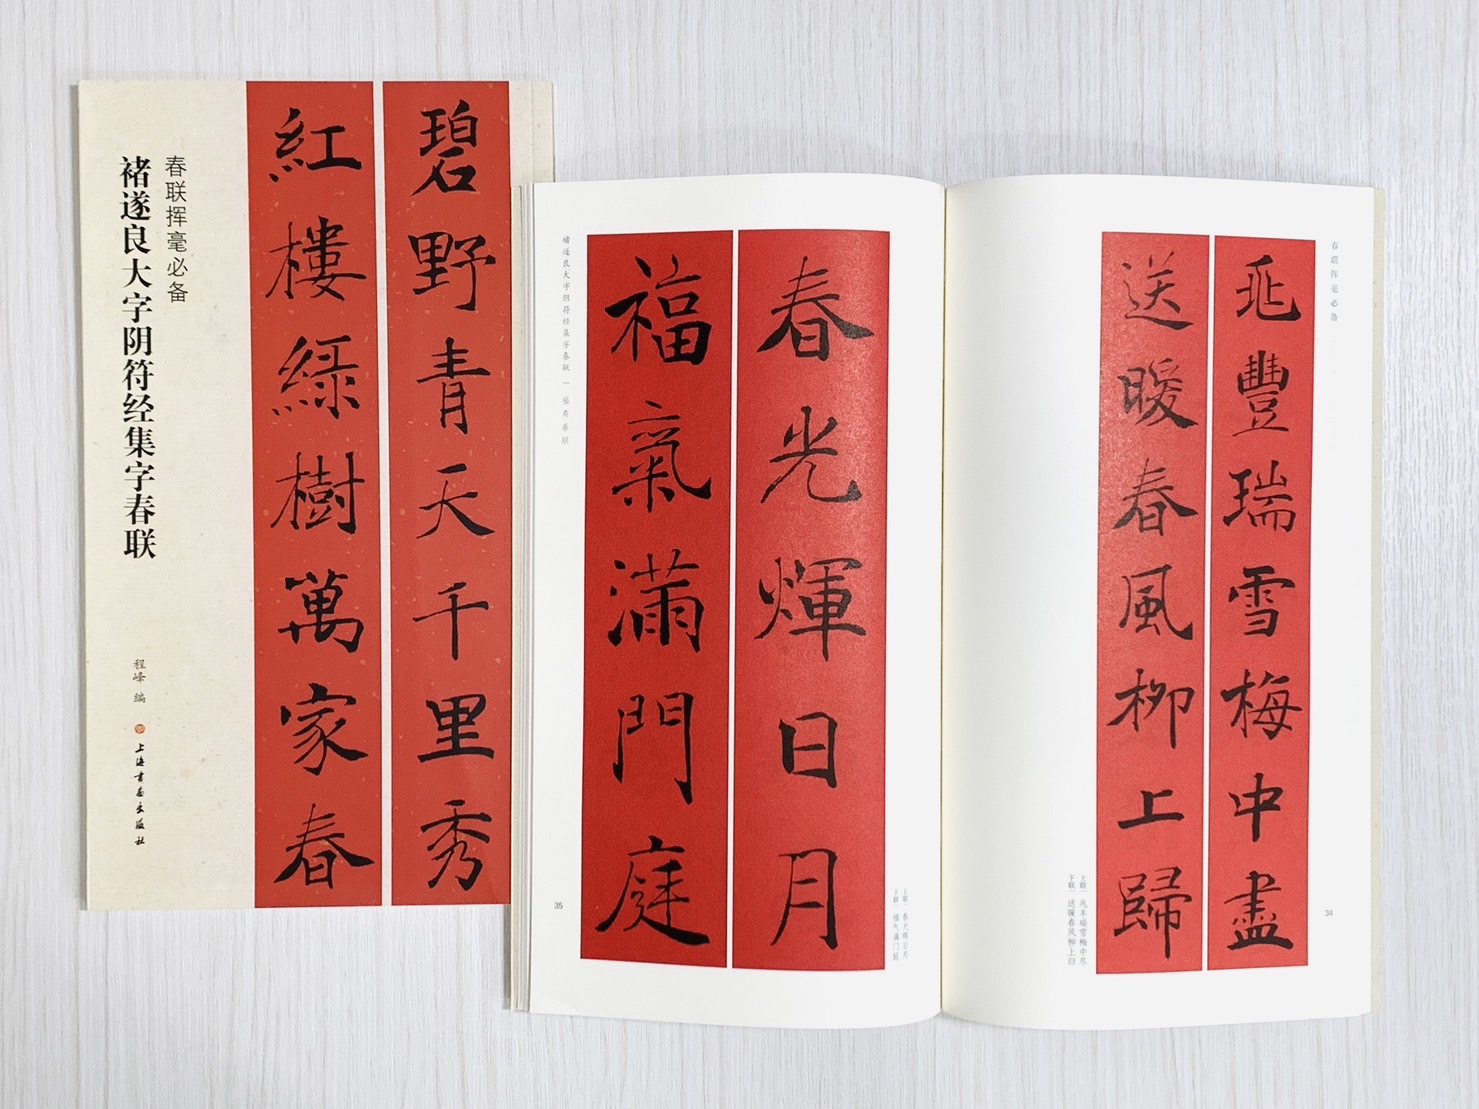 春联挥毫必备
褚遂良大字阴符经集字春联
程峰 编
上海书画出版社
碧野青天千里秀
紅樓綠樹萬家春
春联挥毫必备
兆豐瑞雪梅中盡
送暖春風柳上歸
上联
下联
送暖春风柳上归
34
春光輝日月
福氣滿門庭
上联 春光辉日月
下联 福气满门庭
褚遂良大字阴符经集字春联 福寿春联
35